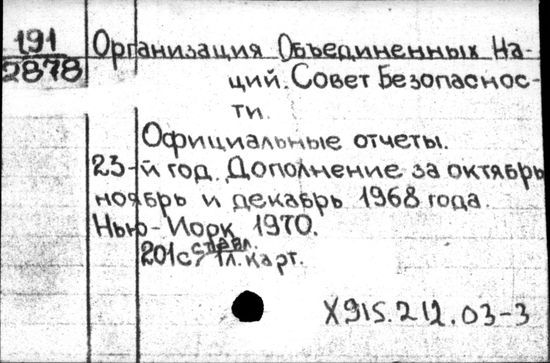 191
2878
Организация Объединенных На-
ций. Совет Безопаснос-
ти.
Официальные отчеты.
23-й год. Дополнение за октябрь
ноябрь и декабрь 1968 года.
Нью-Йорк, 1970.
201с;
1л. карт.
Х915.212.03-3